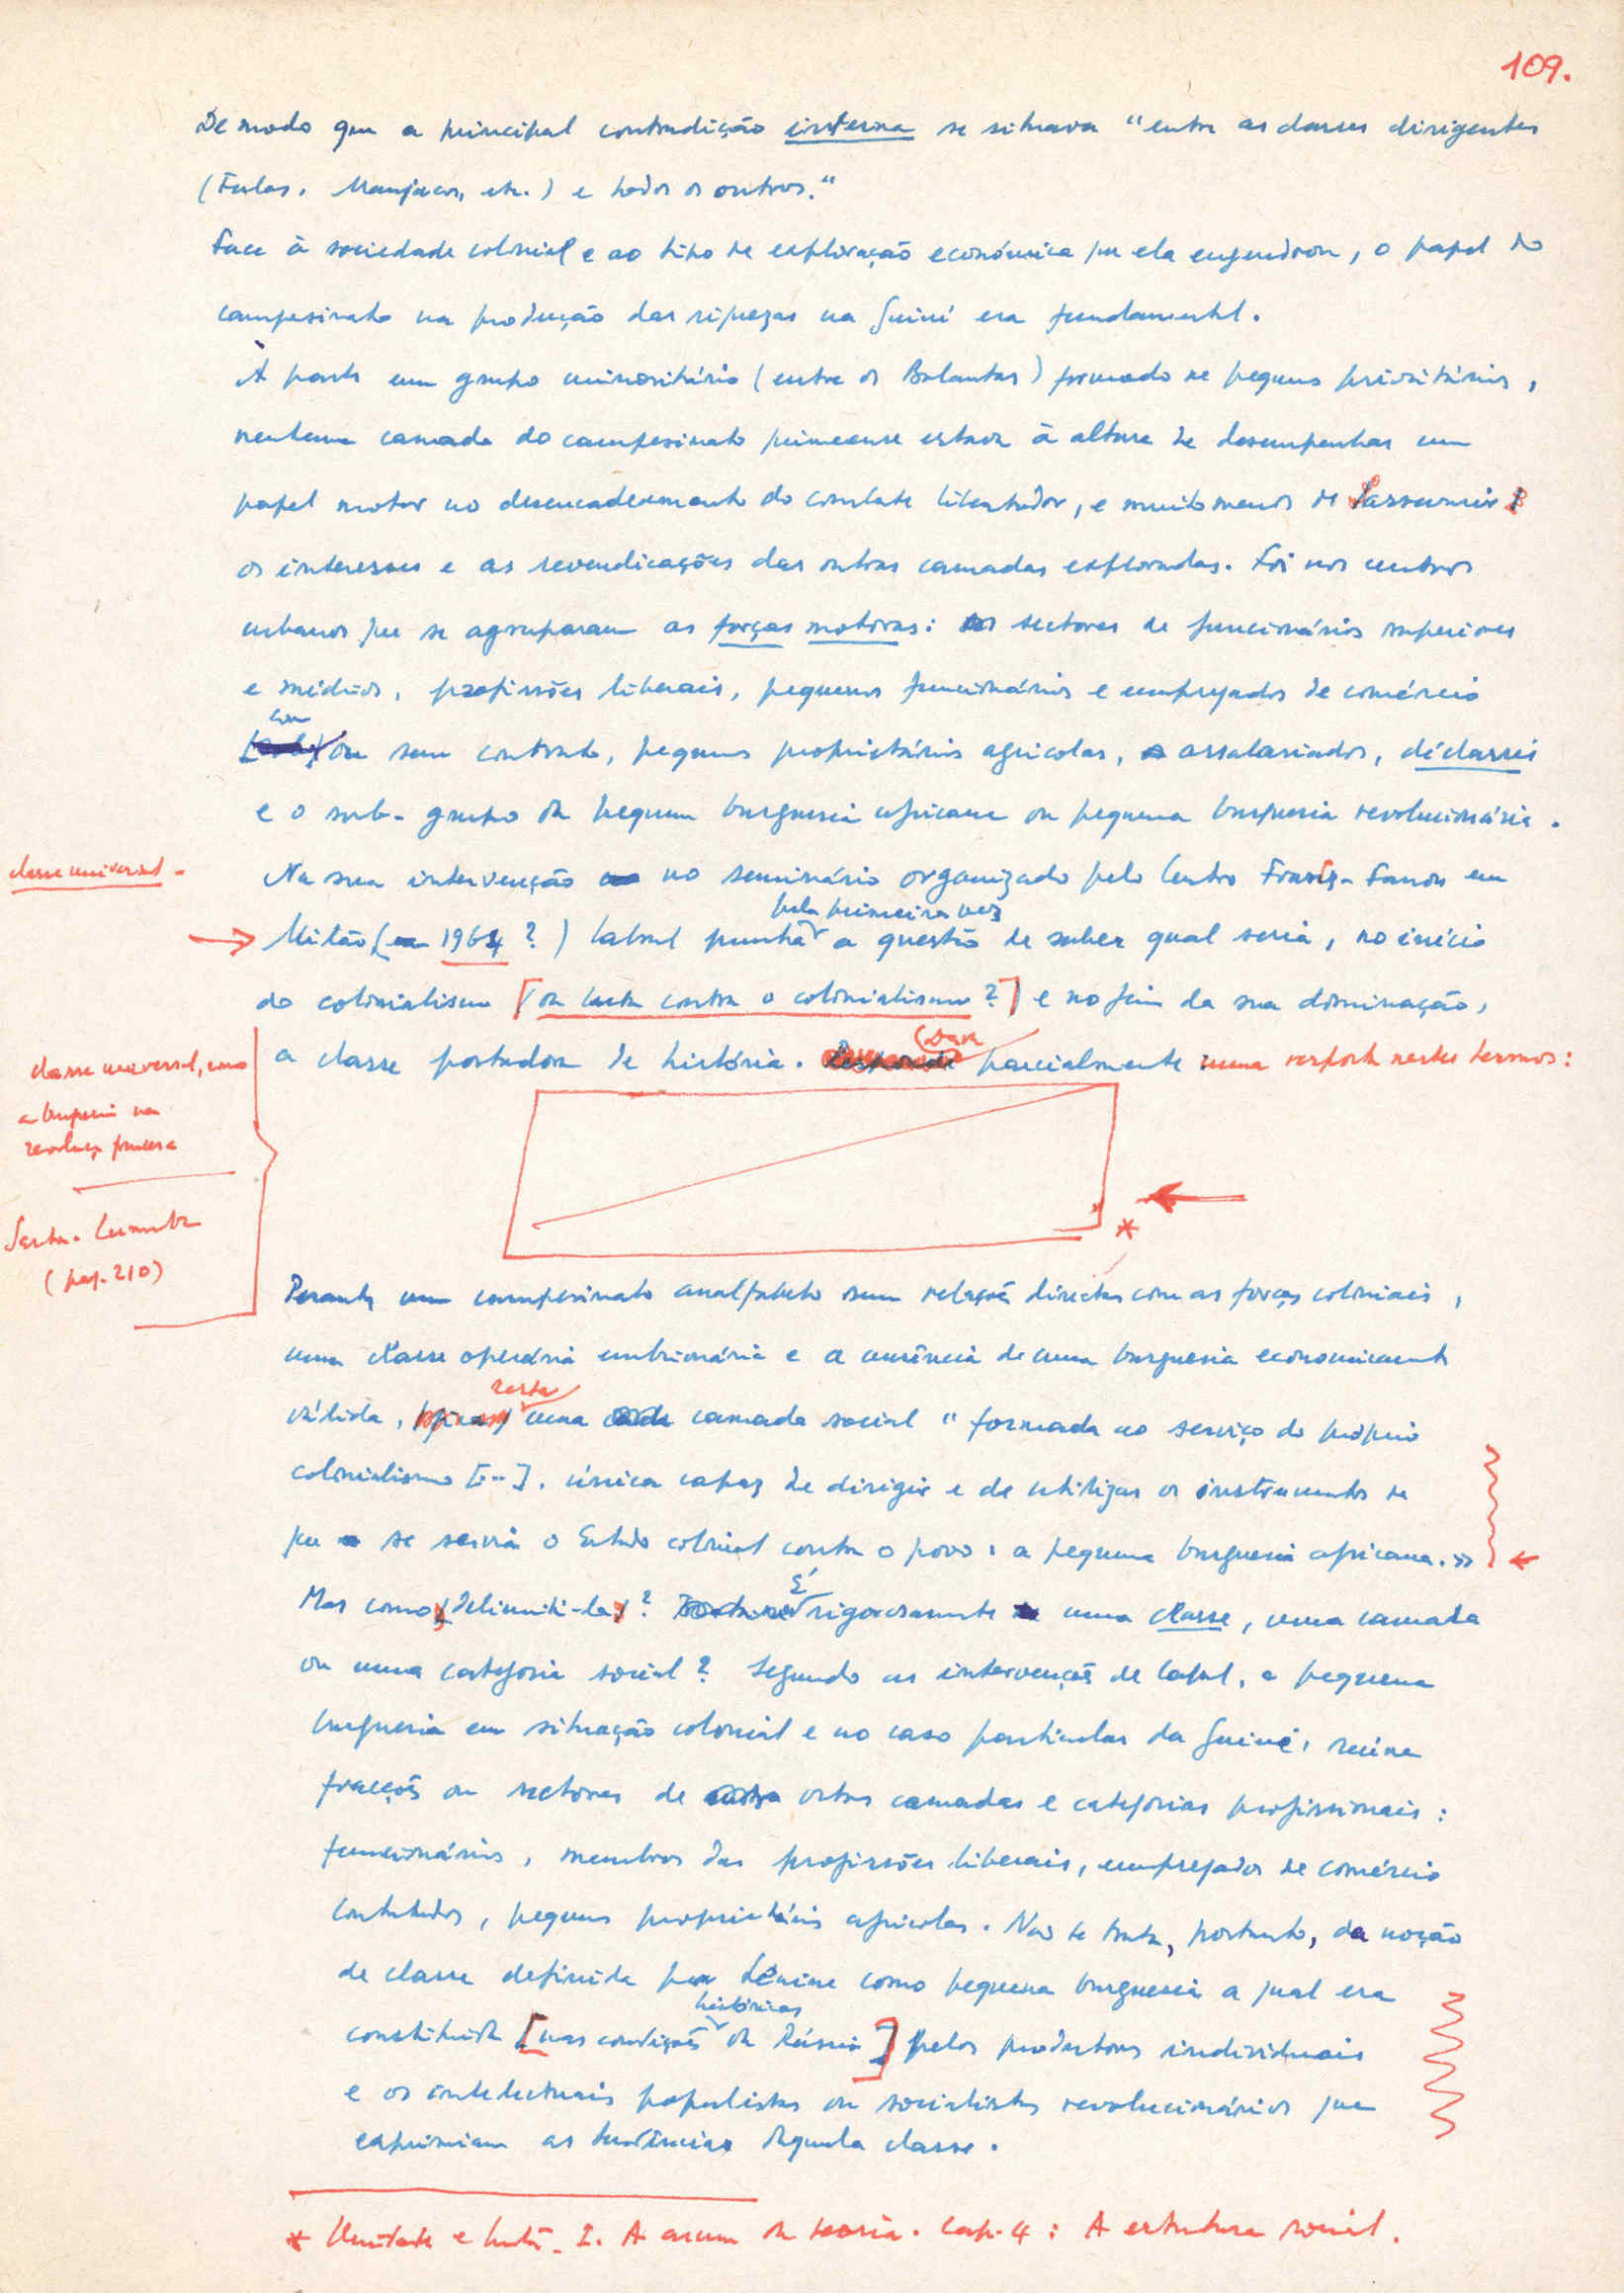 109.
De modo que a principal contradição interna se situava "entre as classes dirigentes
(Fulas, Manjacos, etc.) e todos os outros."
Face à sociedade colonial e ao tipo de exploração económica que ela engendrou, o papel do
campesinato na produção das riquezas na Guiné era fundamental.
À parte um grupo minoritário (entre os Balantas) formado de pequenos proprietários,
nenhuma camada do campesinato guineense estava à altura de desempenhar um
papel motor no desencadeamento do combate libertador, e muito menos de assumir
os interesses e as reivindicações das outras camadas exploradas. Foi nos centros
urbanos que se agruparam as forças motoras: sectores de funcionários superiores
e médios, profissões liberais, pequenos funcionários e empregados de comércio
com
ou sem contrato, pequenos proprietários agrícolas, assalariados, déclassés
e o sub-grupo da pequena burguesia africana ou pequena burguesia revolucionária.
classe universal -
Na sua intervenção no seminário organizado pelo Centro Frantz-Fanon em
pela primeira vez
Milão (1964?) Cabral punha a questão de saber qual seria, no início
do colonialismo [(ou luta contra o colonialismo?)] e no fim da sua dominação,
a classe portadora de história. (Dava parcialmente uma resposta nestes termos:
classe universal, como
a burguesia na
revolução francesa
(pag. 210)
*
Perante um campesinato analfabeto sem relações directas com as forças coloniais,
uma classe operária embrionária e a ausência de uma burguesia economicamente
resta
válida, uma camada social "formada ao serviço do próprio
colonialismo [...], única capaz de dirigir e de utilizar os instrumentos de
que se servia o Estado colonial contra o povo: a pequena burguesia africana.»
É
Mas como delimitá-la? rigorosamente uma classe, uma camada
ou uma categoria social? Segundo as intervenções de Cabral, a pequena
burguesia em situação colonial e no caso particular da Guiné, reúne
fracções ou sectores de outras camadas e categorias profissionais:
funcionários, membros das profissões liberais, empregados de comércio
contratados, pequenos proprietários agrícolas. Não se trata, portanto, da noção
de classe definida por Lénine como pequena burguesia a qual era
históricas
constituída [nas condições da Rússia] pelos produtores individuais
e os intelectuais populistas ou socialistas revolucionários que
exprimiam as tendências daquela classe.
* Unidade e luta - I. A arma da teoria. Cap. 4: A estrutura social.